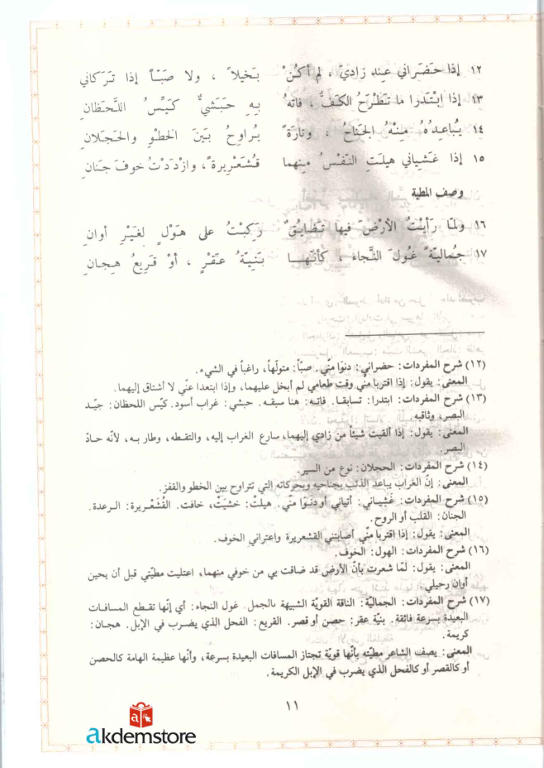 ١٢ إذا حَضَراني عِند زادِيَ ، لم أكُنْ بَخيلاً ، ولا صَبّاً إذا تَرَكاني
١٣ إذا ابْتَدرا ما تَطْرَحُ الكَفُّ ، فاتَهُ بِهِ حَبَشيٌّ كَيّسُ اللّحَظانِ
١٤ يُباعِدُهُ مِنْهُ الجَناحُ ، وتارَةً يُراوِحُ بَينَ الخَطْوِ والحَجَلانِ
١٥ إذا غَشياني هيلَتِ النّفْسُ مِنهما قُشَعْريرةً ، وازْدَدْتُ خوفَ جَنانِ
وصف المطية
١٦ ولمّا رَأَيْتُ الأرْضَ فيها تَضايُقٌ رَكِبْتُ على هَوْلٍ لغَيْرِ أوانِ
١٧ جُماليّةً غُولَ النّجاءِ ، كأنّها بَنيّةُ عَقْرٍ ، أوْ قَريعُ هِجانِ
(١٢) شرح المفردات: حضراني: دنوا منّي. صبّاً: متولّهاً، راغباً في الشيء.
المعنى: يقول: إذا اقتربا منّي وقت طعامي لم أبخل عليهما، وإذا ابتعدا عنّي لا أشتاق إليهما.
(١٣) شرح المفردات: ابتدرا: تسابقا. فاته: هنا سبقه. حبشي: غراب أسود. كيّس اللحظان: جيّد
البصر، وثاقبه.
المعنى: يقول: إذا ألقيت شيئاً من زادي إليهما، سارع الغراب إليه، والتقطه، وطار به، لأنّه حادّ
البصر.
(١٤) شرح المفردات: الحجلان: نوع من السير.
المعنى: إنّ الغراب يباعد الذئب بجناحيه وبحركاته التي تتراوح بين الخطو والقفز.
(١٥) شرح المفردات: غشياني: أتياني أو دنوَا منّي. هيلتْ: خشيَتْ، خافت. القُشَعْريرة: الرعدة.
الجنان: القلب أو الروح.
المعنى: يقول: إذا اقتربا منّي أصابتني القشعريرة واعتراني الخوف.
(١٦) شرح المفردات: الهول: الخوف.
المعنى: يقول: لمّا شعرت بأنّ الأرض قد ضاقت بي من خوفي منهما، اعتليت مطيّتي قبل أن يحين
أوان رحيلي.
(١٧) شرح المفردات: الجماليّة: الناقة القويّة الشبيهة بالجمل. غول النجاء: أي إنّها تقطع المسافات
البعيدة بسرعة فائقة. بنيّة عقر: حصن أو قصر. القريع: الفحل الذي يضرب في الإبل. هجان:
كريمة.
المعنى: يصف الشاعر مطيّته بأنّها قويّة تجتاز المسافات البعيدة بسرعة، وأنّها عظيمة الهامة كالحصن
أو كالقصر أو كالفحل الذي يضرب في الإبل الكريمة.
١١
akdemstore